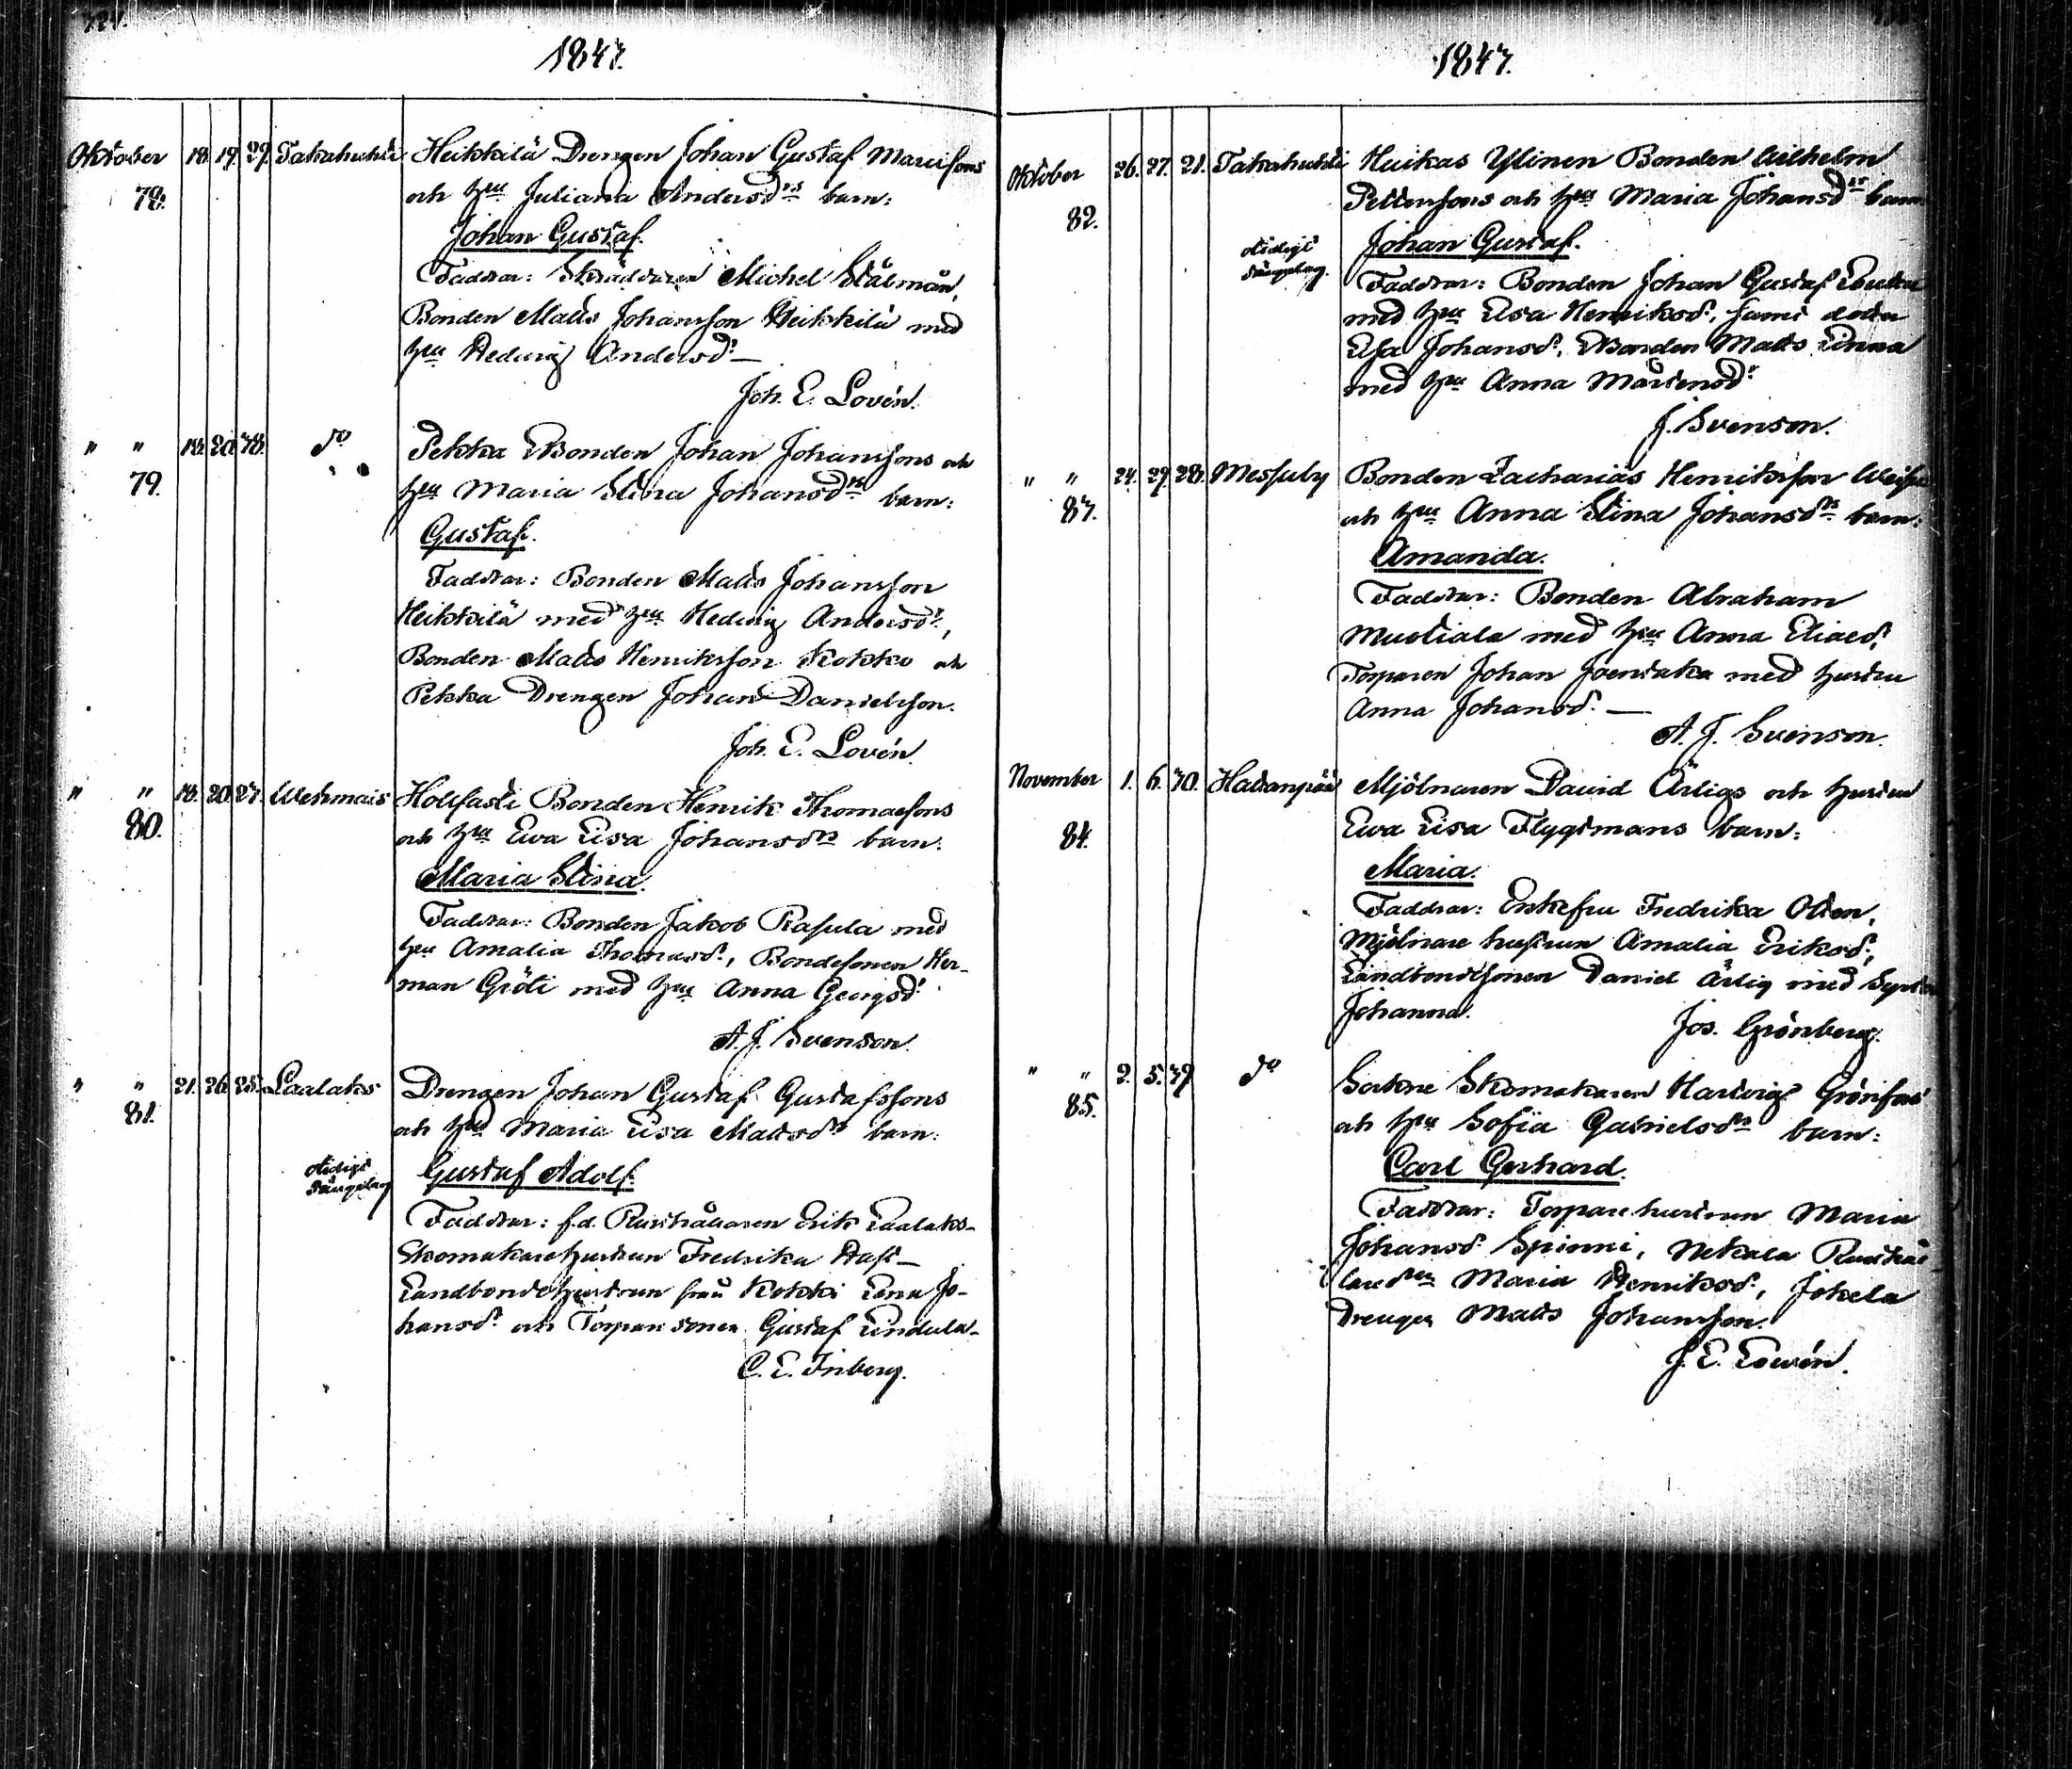 1847.
Oktober 18. 19. 29. Takahuhti Heikkilä Drengen Johan Gustaf Mattssons
78. och hru Juliana Andersdrs barn:
Johan Gustaf.
Faddrar: Skräddaren Michel Stålman,
Bonden Matts Johansson Heikkilä med
hru Hedvig Andersdr —
Joh. E. Lovén.
" " 18. 20. 38. do Pekka Bonden Johan Johanssons och
79. hru Maria Stina Johansdrs barn:
Gustaf.
Faddrar: Bonden Matts Johansson
Heikkilä med hru Hedvig Andersdr,
Bonden Matts Henriksson Kokko och
Pekka Drengen Johan Danielsson.
Joh. E. Lovén.
" " 18. 20. 27. Wehmais Hollfasti Bonden Henrik Thomassons
80. och hru Ewa Lisa Johansdrs barn:
Maria Stina.
Faddrar: Bonden Jakob Rasula med
hru Amalia Thomasdr, Bondesonen Her-
man Gröti med hru Anna Georgsdr.
A. J. Svenson.
" " 21. 26. 25. Laalaks Drengen Johan Gustaf Gustafssons
81. och hru Maria Lisa Mattsdrs barn:
otidigt
sängelag Gustaf Adolf.
Faddrar: f.d. Rusthållaren Erik Laalaks-
Skomakarehustrun Fredrika Hast —
Landbondehustrun från Kokki Lena Jo-
hansdr och Torparesonen Gustaf Lindula-
C. E. Friberg.
1847.
Oktober 26. 27. 21. Takahuhti Huikas Ylinen Bonden Wilhelm
82. Pettersons och hru Maria Johansdrs barn
otidigt
sängelag. Johan Gustaf.
Faddrar: Bonden Johan Gustaf
med hru Lisa Henriksdr, samt dotter
Lisa Johansdr, Bonden Matts Linna
med hru Anna Mårtensdr
J. Svenson.
" " 24. 29. 28. Messuby Bonden Zacharias Henriksson
83. och hru Anna Stina Johansdrs barn:
Amanda.
Faddrar: Bonden Abraham
Muotiala med hru Anna Eliaedr,
Torparen Johan Joentaka med hustru
Anna Johansdr. —
A. J. Svenson.
November 1. 6. 30. Hatanpää Mjölnaren David Ärligs och hustru
84. Ewa Lisa Flygtmans barn:
Maria.
Faddrar: Enkefru Fredrika Otten,
Mjölnare hustrun Amalia Eriksdr,
Landbondesonen Daniel Ärlig med Syster
Johanna.
Jos. Grönberg.
" " 2. 5. 39 do Sockne Skomakaren Hartvig Grönfors
85. och hru Sofia Gabrielsdrs barn:
Carl Gerhard.
Faddrar: Torparehustrun Maria
Johansdr Spinni, Nekala Rusthål-
laredrn Maria Henriksdr, Jokela
Drengen Matts Johansson.
J. E. Lovén.